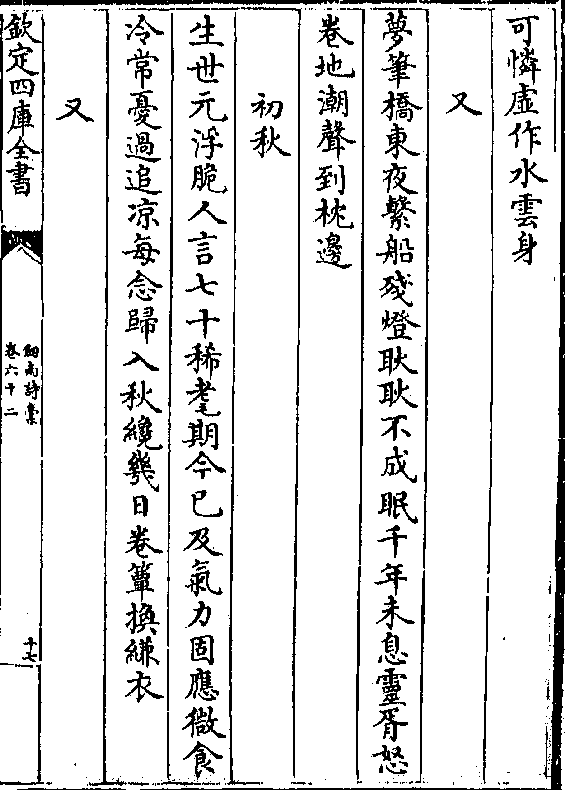 可憐虛作水雲身
又
夢筆橋東夜繫船殘燈耿耿不成眠千年未息靈胥怒
卷地潮聲到枕邊
初秋
生世元浮脆人言七十稀耄期今已及氣力固應微食
冷常憂過追凉每念歸入秋纔幾日卷簟換縑衣
又
欽定四庫全書
劔南詩藁
卷六十二
十七